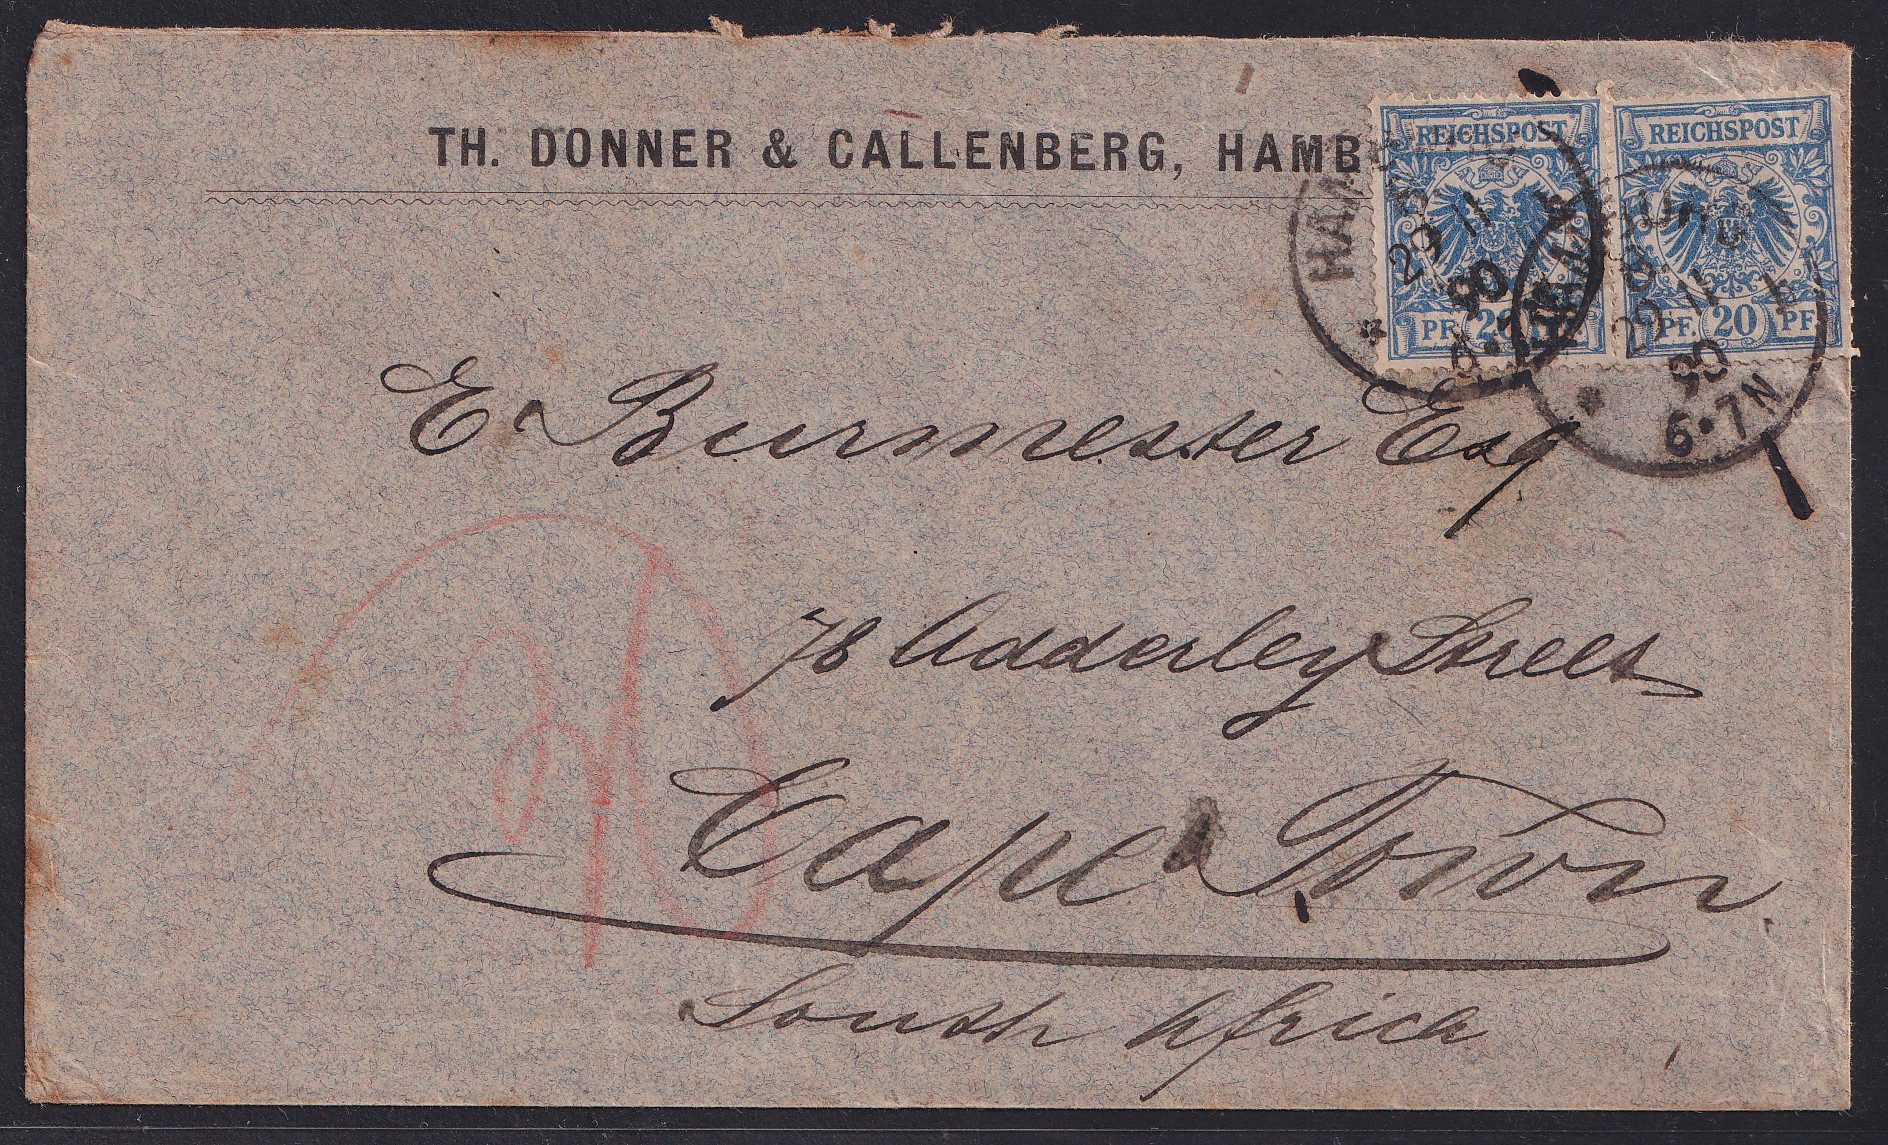 TH. DONNER & CALLENBERG, HAMB
REICHSPOST REICHSPOST
PF. 20 PF. 20 PF.
HAM
29 11
90
29 11
90
6·7N
E Burmester Esq
78 Adderley Street
Cape Town.
South Africa